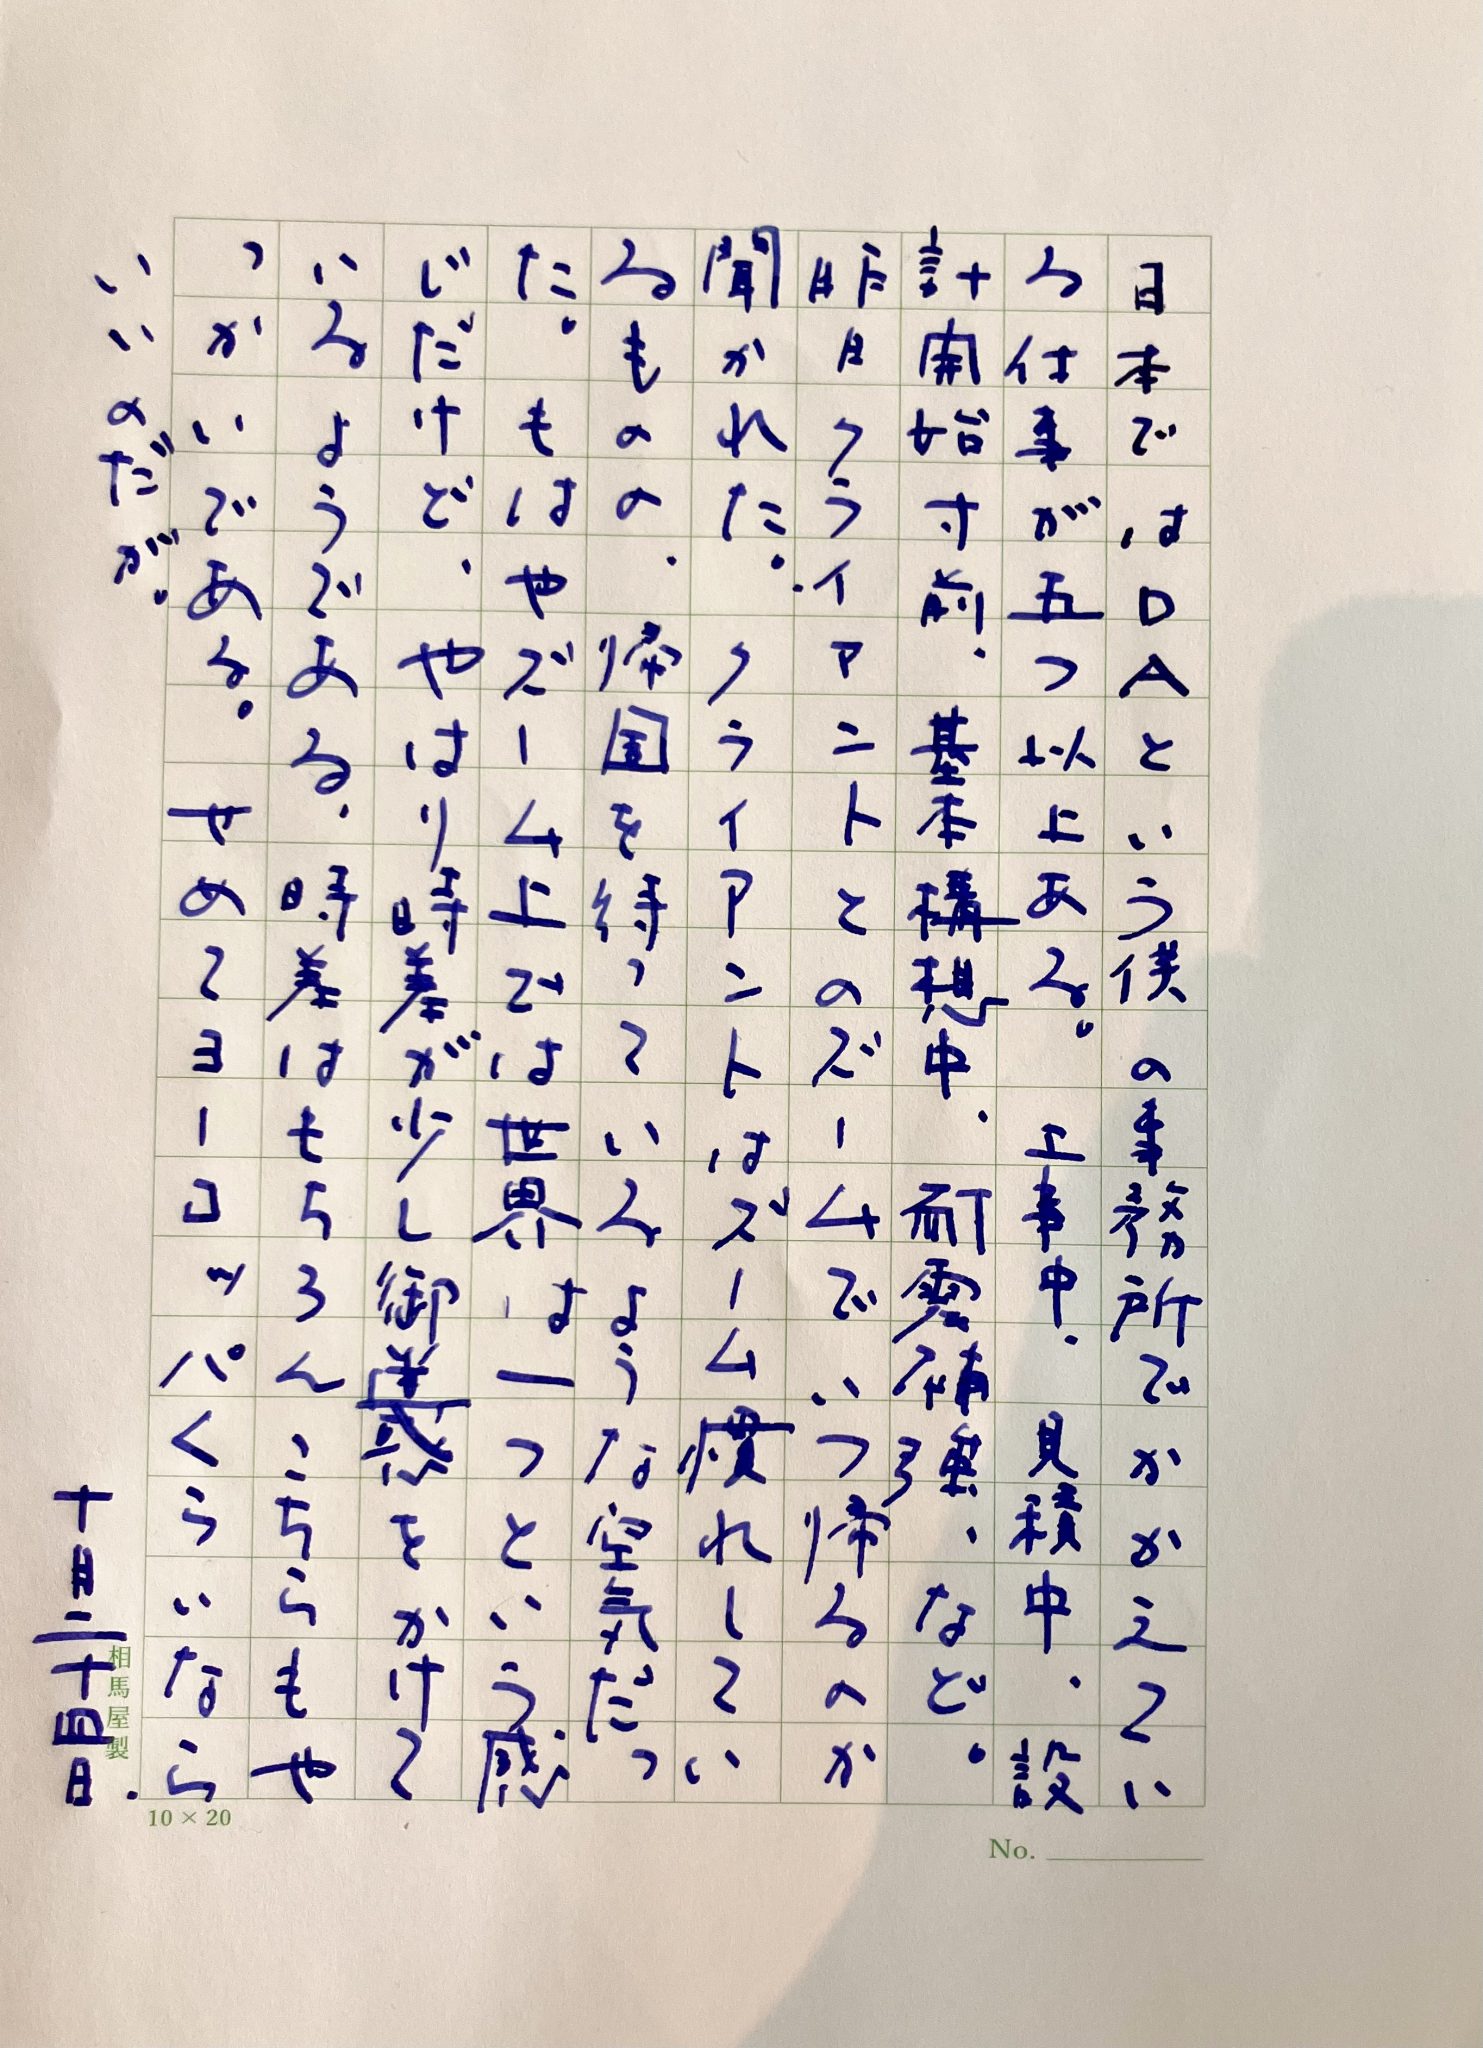 日本ではDAという僕の事務所でかかえてい
る仕事が五つ以上ある。工事中、見積中、設
計開始寸前、基本構想中、耐震補強、など。
昨日クライアントとのズームでいつ帰るのか
聞かれた。クライアントはズーム慣れしてい
るものの、帰国を待っているような空気だっ
た。もはやズーム上では世界は一つという感
じだけど、やはり時差が少し御迷惑をかけて
いるようである、時差はもちろんこちらもや
っかいである。せめてヨーロッパくらいなら
いいのだが。
十月二十四日.
相馬屋製
10×20
No.